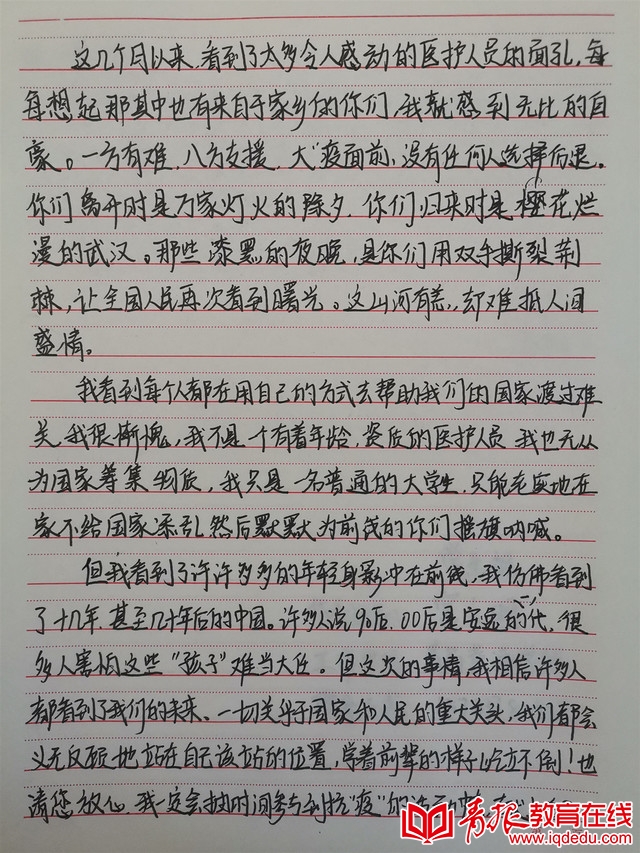 这几个月以来,看到了太多令人感动的医护人员的面孔,每
每想起那其中也有来自于家乡的你们,我就感到无比的自
豪。一方有难,八方支援,大"疫面前,没有任何人选择后退。
你们离开时是万家灯火的除夕,你们归来时是樱花烂
漫的武汉。那些漆黑的夜晚,是你们用双手撕裂荆
棘,让全国人民再次看到曙光。这山河有恙,却难抵人间
盛情。
我看到每个人都在用自己的方式去帮助我们的国家渡过难
关,我很惭愧,我不是一个有着年龄,资质的医护人员,我也无从
为国家筹集物资,我只是一名普通的大学生,只能老实地在
家不给国家添乱,然后默默为前线的你们摇旗呐喊。
但我看到了许许多多的年轻身影冲在前线,我仿佛看到
了十几年,甚至几十年后的中国。许多人说90后,00后是 的一代,很
多人害怕这些"孩子"难当大任。但这次的事情,我相信许多人
都看到了我们的未来。一切关乎于国家和人民的重大关头,我们都会
义无反顾地站在自己该站的位置,学着前辈的样子屹立不倒!也
请您放心,我一定会抽时间参与到抗"疫"的
青报教育在线
www.iqdedu.com